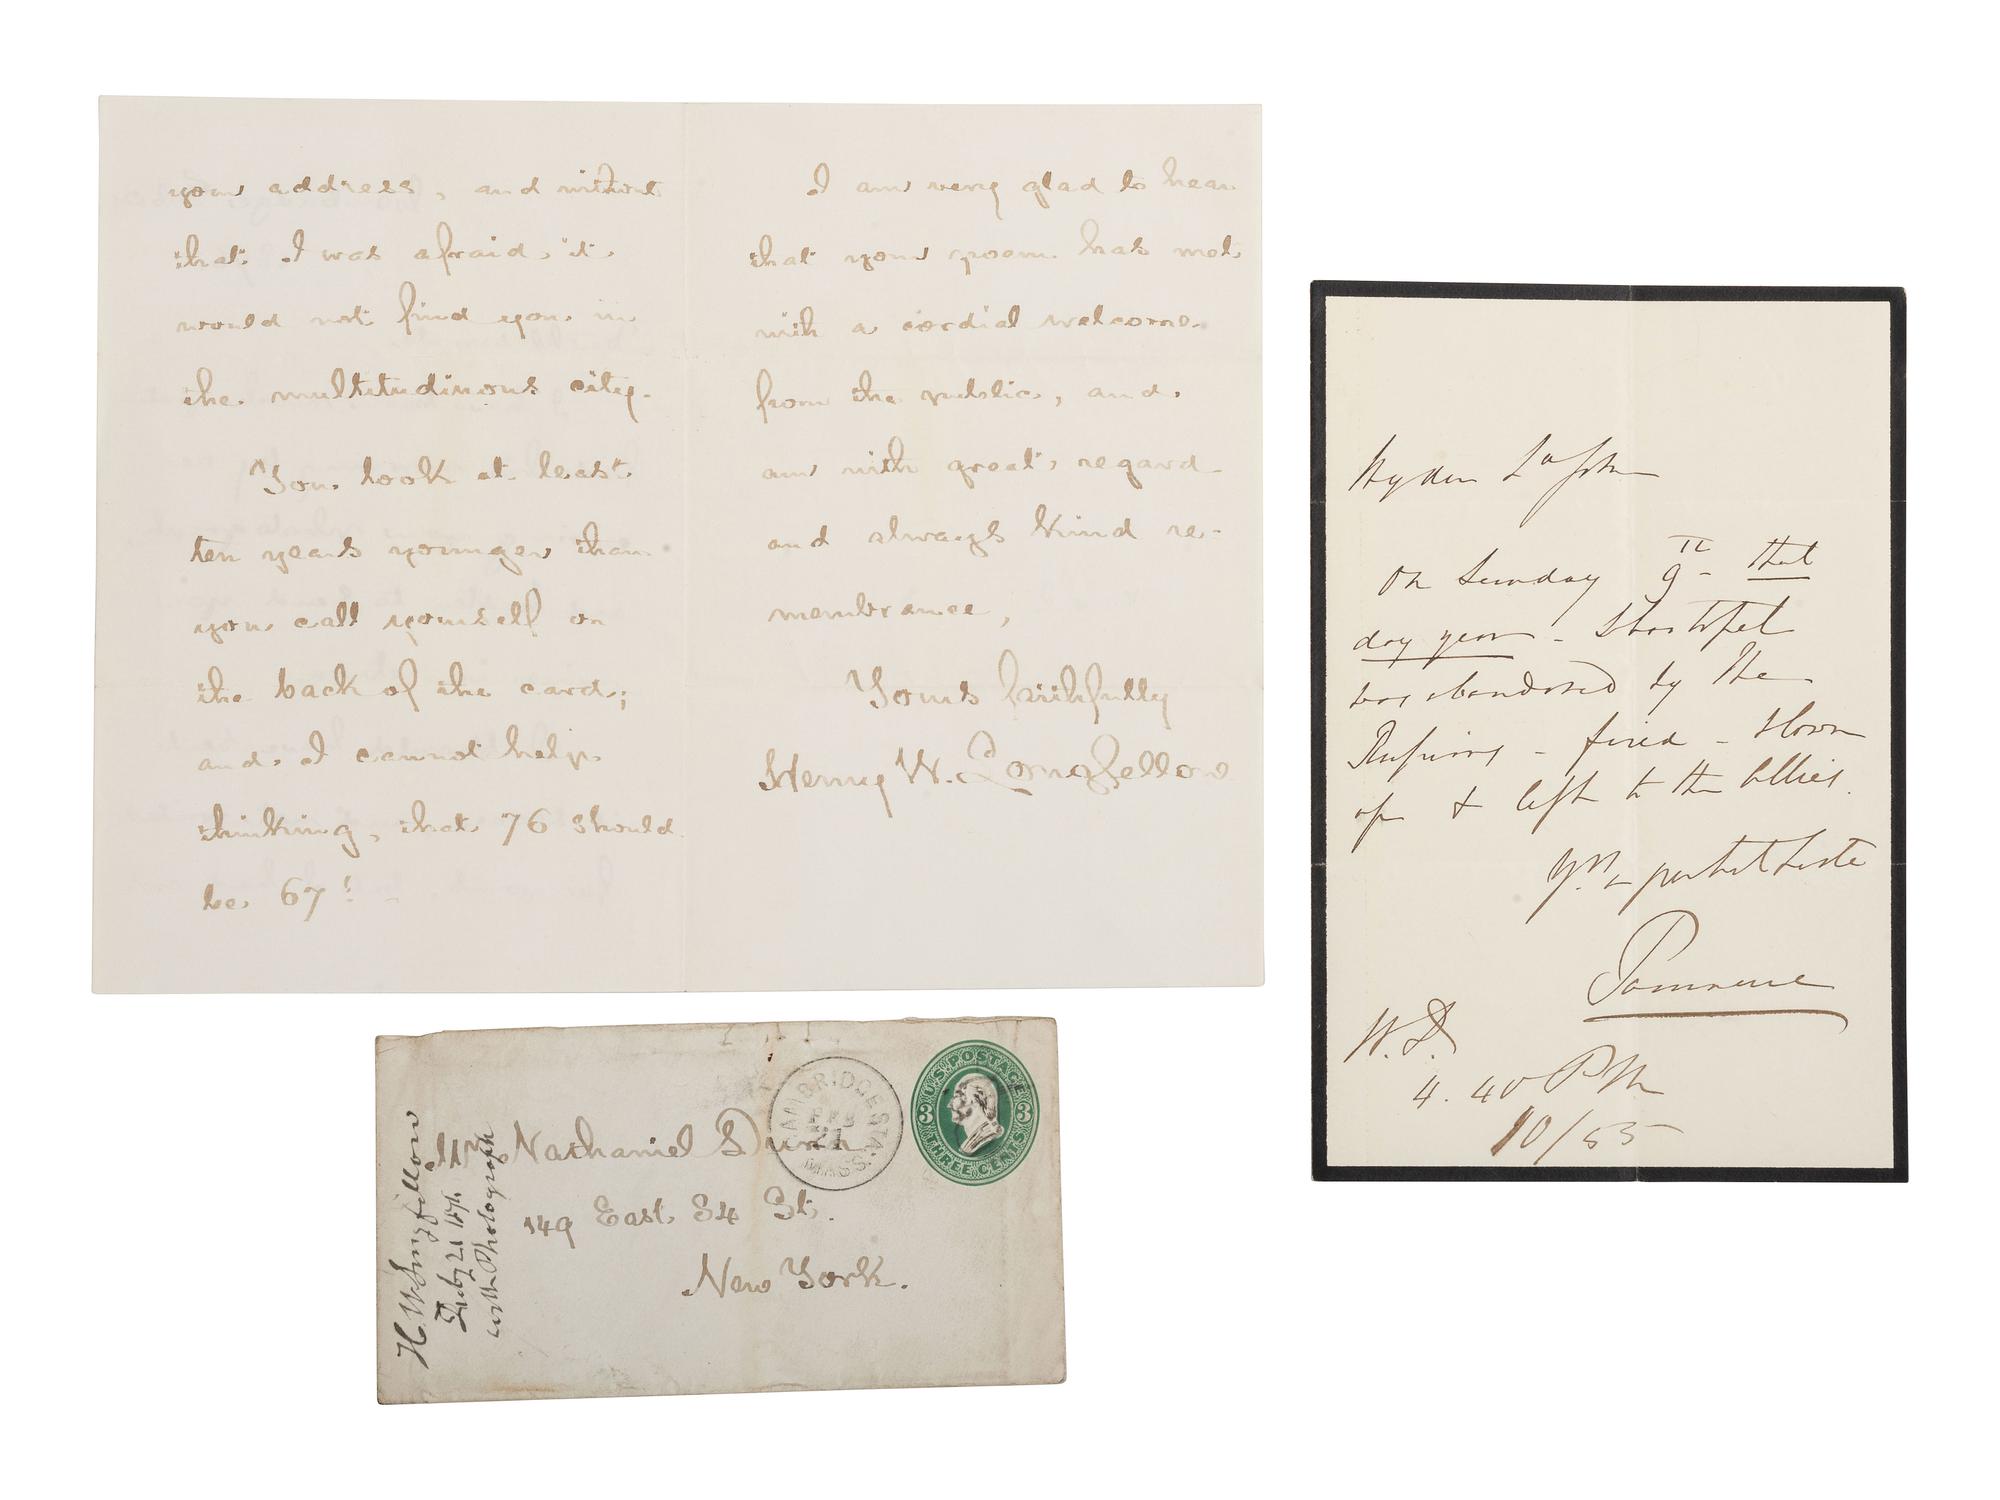 your address, and without
that I was afraid it
would not find you in
the multitudinous city.
You look at least
ten years younger than
you call yourself on
the back of the card;
and I cannot help
thinking, that 76 should
be 67!
I am very glad to hear
that your poem has met
with a cordial welcome
from the public, and
am with great regard
and always kind re-
membrance,
Yours faithfully
Henry W. Longfellow
H. W. Longfellow
Feby 21 1876
with Photograph
Mr Nathaniel Dunn
149 East 34 St.
New York.
CAMBRIDGE STA.
FEB
21
MASS.
U.S. POSTAGE
3 3
THREE CENTS
My dear Ld John
On Sunday 9th that
day year -
was abandoned by the
Russians - fired - blown
up & left to the Allies.
Panmure
W.D.
4.40 PM
10/55